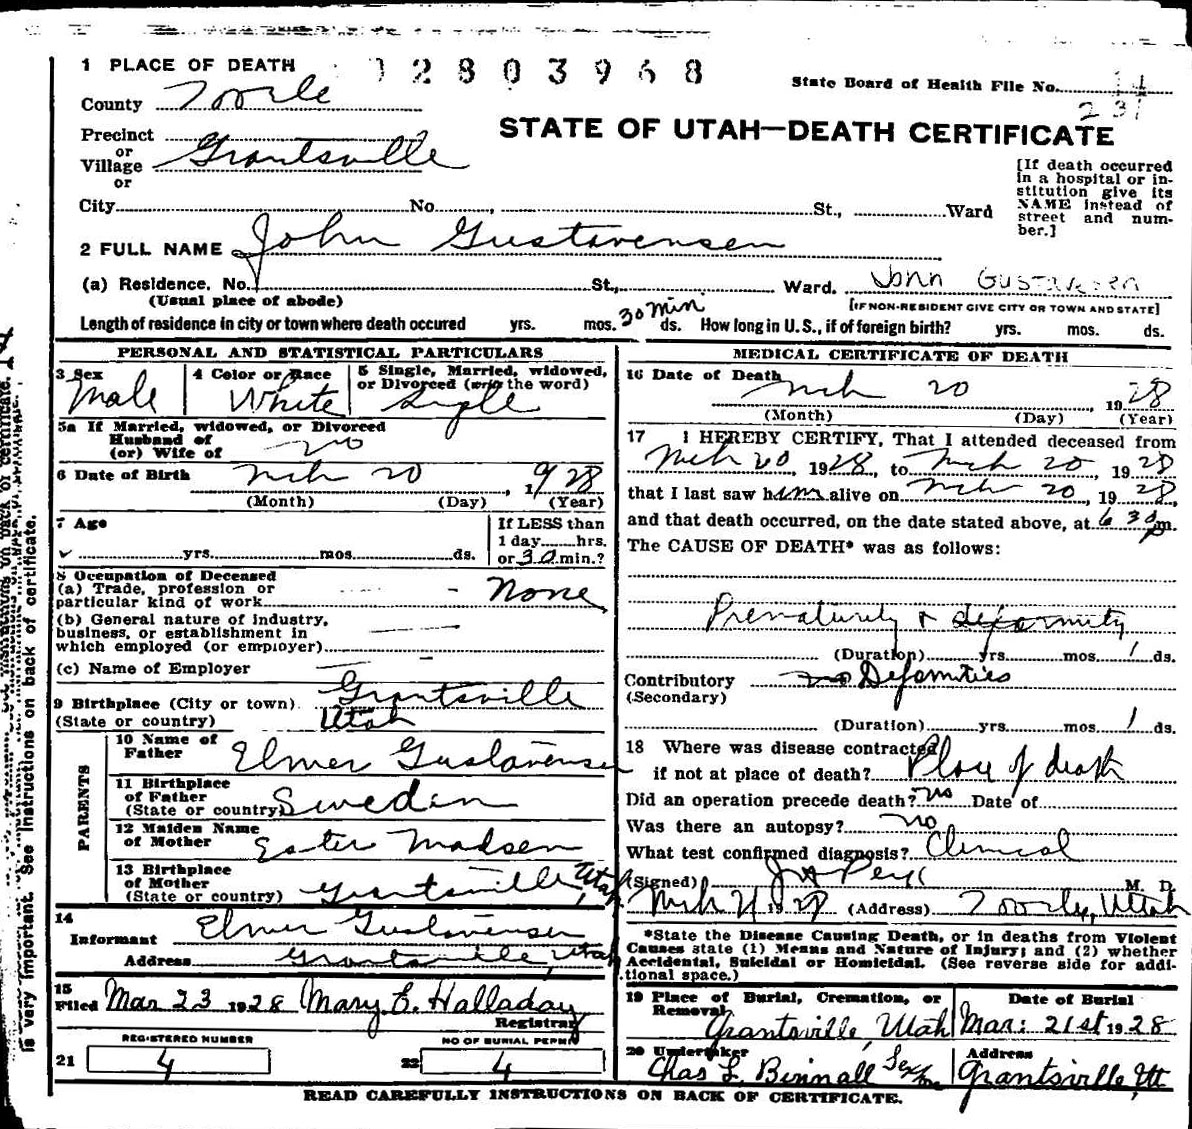 1 PLACE OF DEATH
2803968
State Board of Health File No. 14
231
County Tooele
STATE OF UTAH—DEATH CERTIFICATE
Precinct
or
Village Grantsville
or
[If death occurred
in a hospital or in-
stitution give its
NAME instead of
street and num-
ber.]
City No. St., Ward
2 FULL NAME John Gustavensen
(a) Residence. No. St., Ward. John Gustavesen
(Usual place of abode) [IF NON-RESIDENT GIVE CITY OR TOWN AND STATE]
Length of residence in city or town where death occured yrs. mos. 30 min. ds. How long in U. S., if of foreign birth? yrs. mos. ds.
PERSONAL AND STATISTICAL PARTICULARS
3 Sex 4 Color or Race 5 Single, Married, widowed,
or Divorced (write the word)
Male White Single
5a If Married, widowed, or Divorced
Husband of
(or) Wife of no
6 Date of Birth Mch 20, 1928
(Month) (Day) (Year)
7 Age If LESS than
1 day hrs.
yrs. mos. ds. or 30 min.?
8 Occupation of Deceased
(a) Trade, profession or
particular kind of work None
(b) General nature of industry,
business, or establishment in
which employed (or employer)
(c) Name of Employer
9 Birthplace (City or town) Grantsville
(State or country) Utah
PARENTS
10 Name of
Father Elmer Gustavensen
11 Birthplace
of Father
(State or country) Sweden
12 Maiden Name
of Mother Ester Madsen
13 Birthplace
of Mother
(State or country) Grantsville, Utah
14
Informant Elmer Gustavensen
Address Grantsville, Utah
15
Filed Mar 23 1928 Mary E. Halladay
Registrar
REGISTERED NUMBER NO OF BURIAL PERMIT
21 4 22 4
MEDICAL CERTIFICATE OF DEATH
16 Date of Death
Mch 20, 1928
(Month) (Day) (Year)
17 I HEREBY CERTIFY, That I attended deceased from
Mch 20, 1928, to Mch 20, 1928
that I last saw him alive on Mch 20, 1928,
and that death occurred, on the date stated above, at 6 30 p m.
The CAUSE OF DEATH* was as follows:
Prematurely & deformity
(Duration) yrs. mos. 1 ds.
Contributory no Deformities
(Secondary)
(Duration) yrs. mos. 1 ds.
18 Where was disease contracted
if not at place of death? Place of death
Did an operation precede death? no Date of
Was there an autopsy? no
What test confirmed diagnosis? Clinical
(Signed) J A Peck M. D.
Mch 21 1928 (Address) Tooele, Utah
*State the Disease Causing Death, or in deaths from Violent
Causes state (1) Means and Nature of Injury; and (2) whether
Accidental, Suicidal or Homicidal. (See reverse side for addi-
tional space.)
19 Place of Burial, Cremation, or
Removal Date of Burial
Grantsville, Utah Mar: 21st 1928
20 Undertaker Address
Chas L. Binnall Sexton Grantsville, Ut
READ CAREFULLY INSTRUCTIONS ON BACK OF CERTIFICATE.
is very important. See instructions on back of certificate.